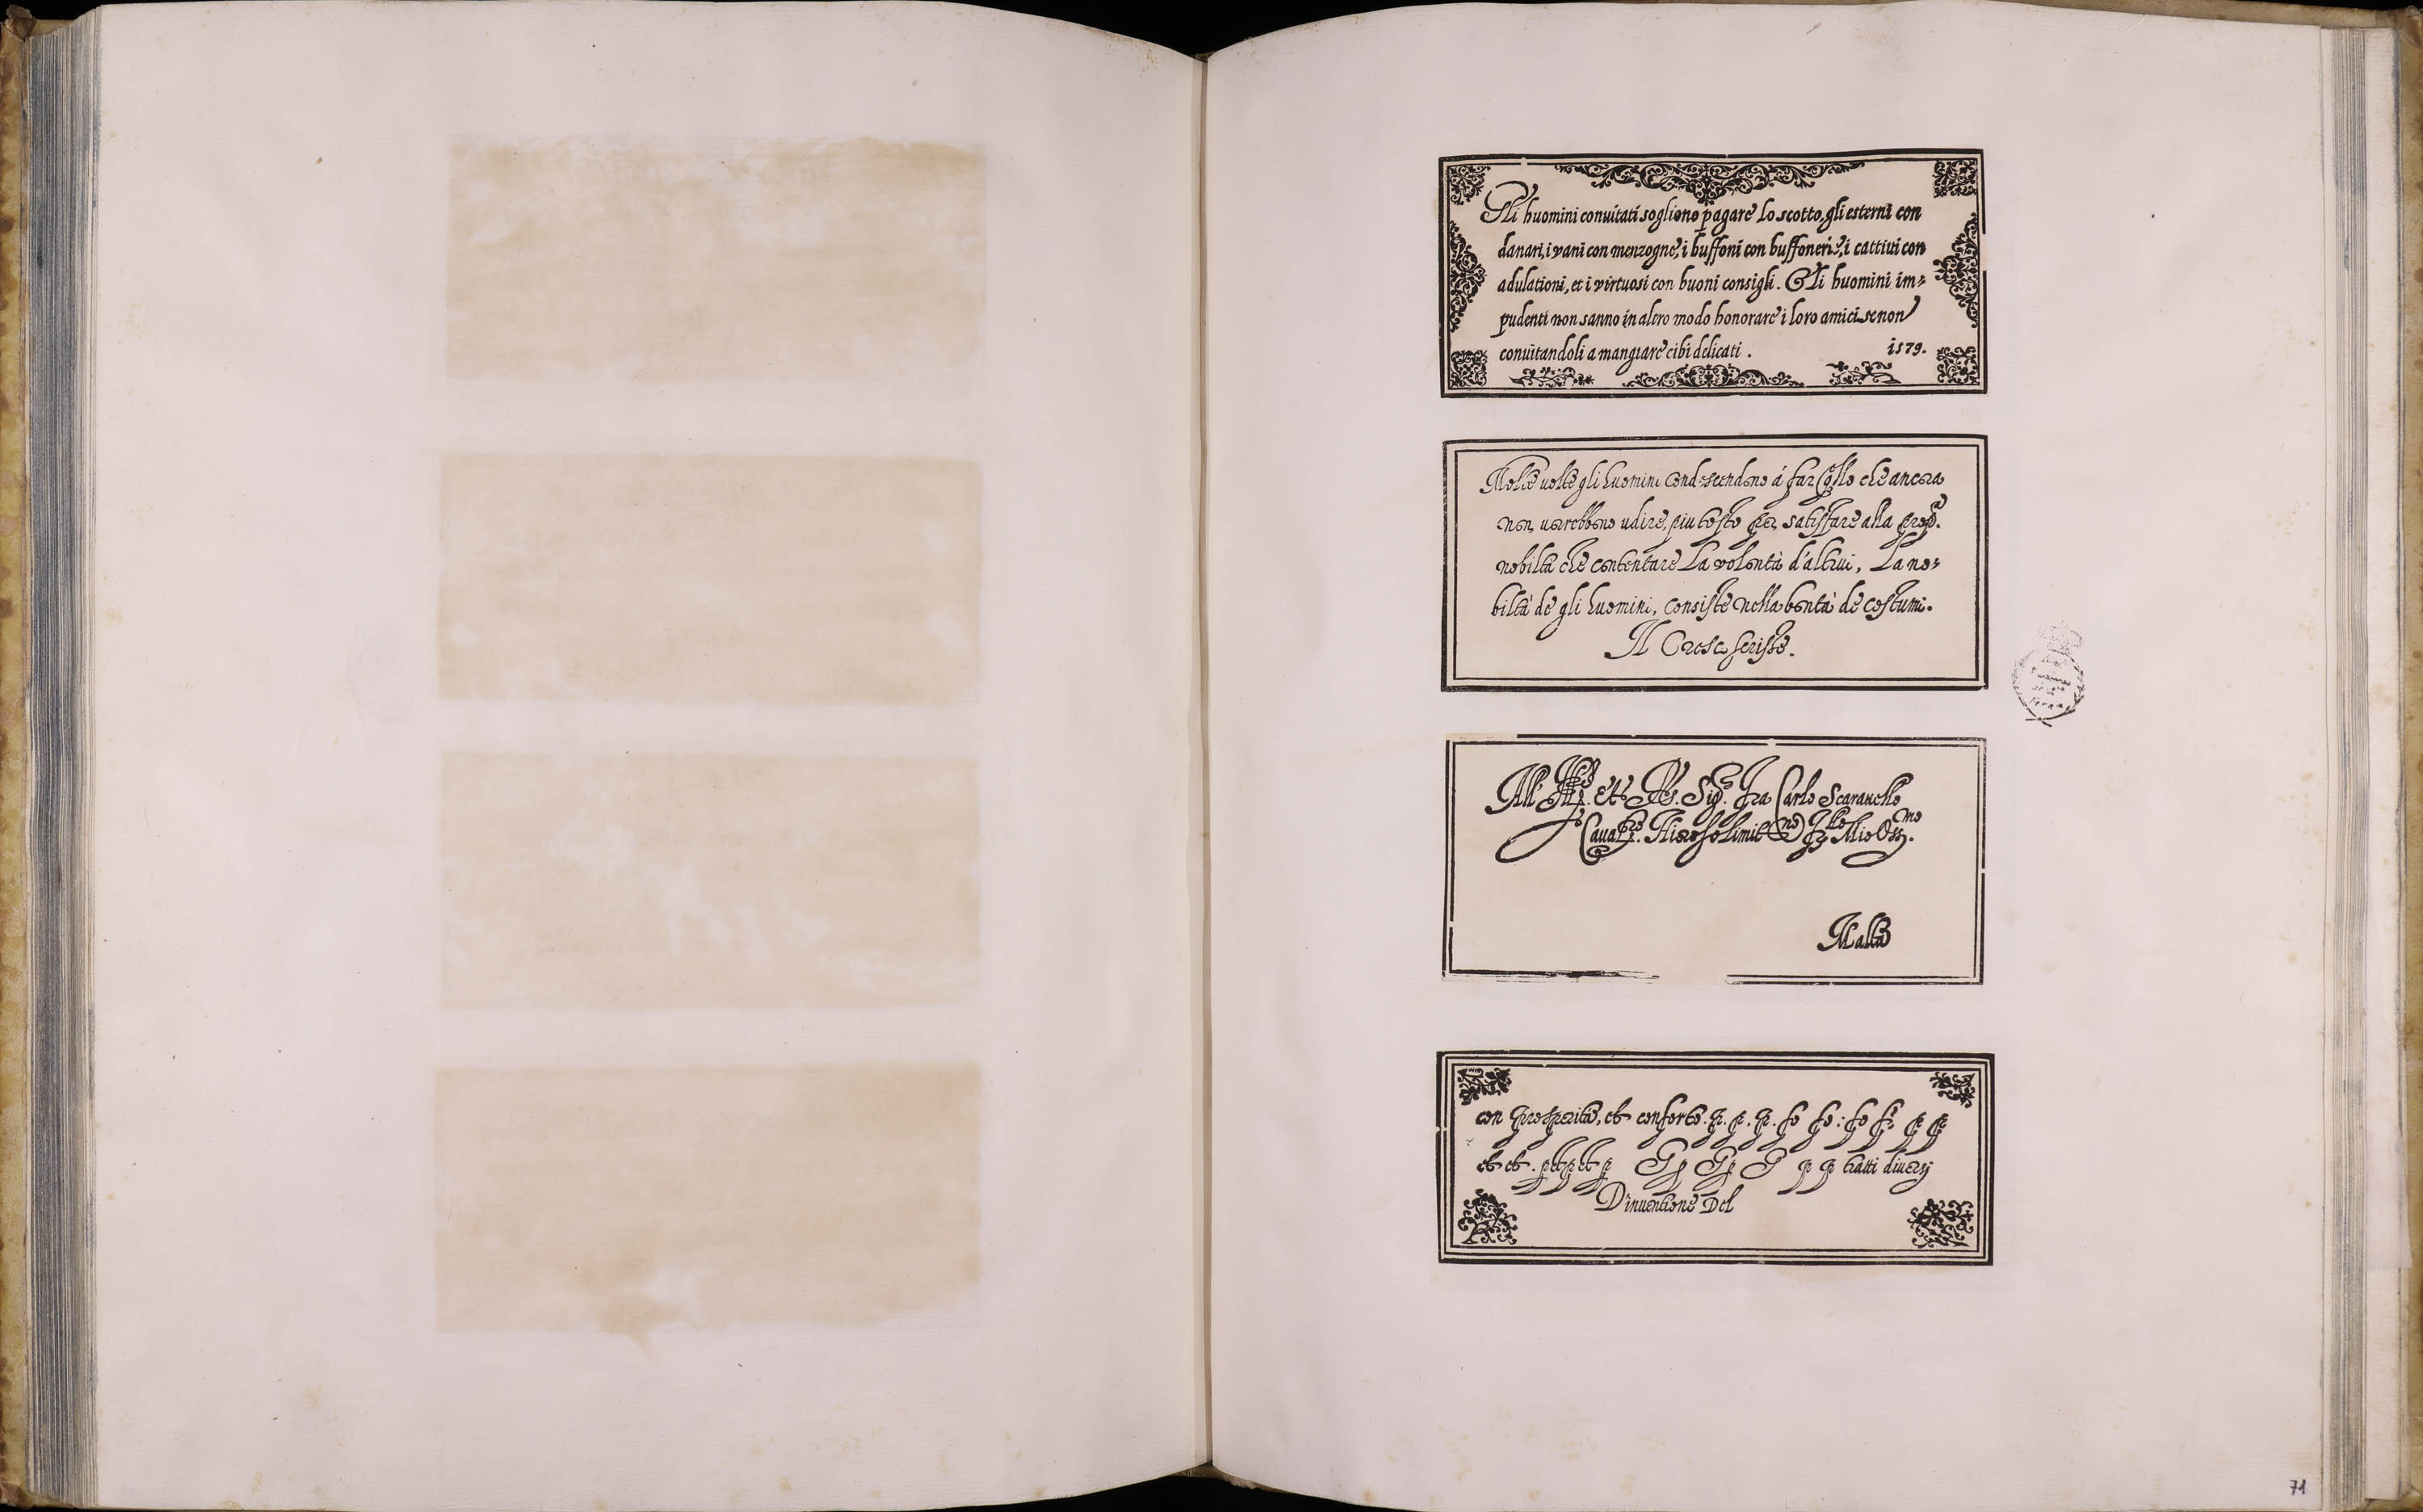 Gli huomini conuitati sogliono pagare lo scotto, gli esterni con
danari, i vani con menzogne, i buffoni con buffonerie, i cattiui con
adulationi, et i virtuosi con buoni consigli. Gli huomini im=
pudenti non sanno in altro modo honorare i loro amici se non
conuitandoli a mangiare cibi delicati. 1579.
Molte uolte gli huomini condescendono á far q̃llo che ancora
non uorebbono udire, piu tosto per satisfare alla prop.ª
nobiltà che contentare la volontà d'altrui, La no=
biltà de gli huomini, consiste nella bontà de costumi.
Il Cresci scrisse.
All' Ill. et Sig. fra Carlo
Caual. Hierosolimit Mio Oss. mo
Malta
con prosperità, et conforto. p. p. p. fo fo: fo p p
et et. p p tratti diuersj
D'inuentione Del
71